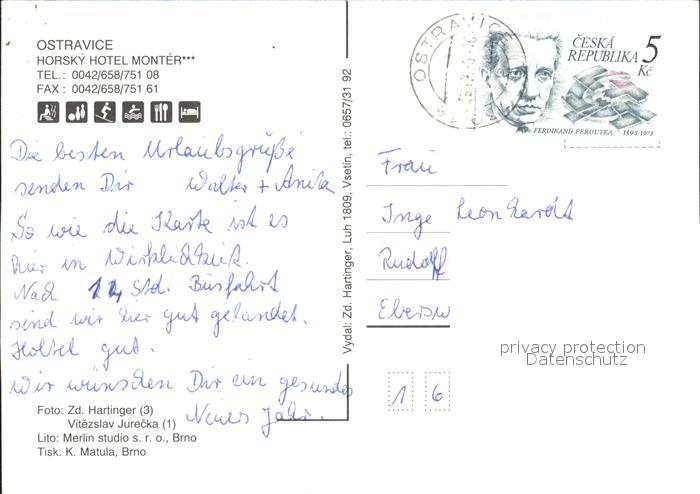 OSTRAVICE
HORSKÝ HOTEL MONTÉR***
TEL.: 0042/658/751 08
FAX: 0042/658/751 61
Die besten Urlaubsgrüße
senden Dir Walter + Anita
So wie die Karte ist es
hier in Wirklichkeit.
Nach Std. Busfahrt
sind wir hier gut gelandet.
Hottel gut.
Wir wünschen Dir ein gesundes
Neues Jahr.
Foto: Zd. Hartinger (3)
Vítězslav Jurečka (1)
Lito: Merlin studio s. r. o., Brno
Tisk: K. Matula, Brno
Vydal: Zd. Hartinger, Luh 1809, Vsetín, tel.: 0657/31 92
OSTRAVICE
ČESKÁ
REPUBLIKA 5
Kč
FERDINAND PEROUTKA 1895-1978
Frau
Inge Leonhardt
Rudolf
Ebersw
privacy protection
Datenschutz
1 6